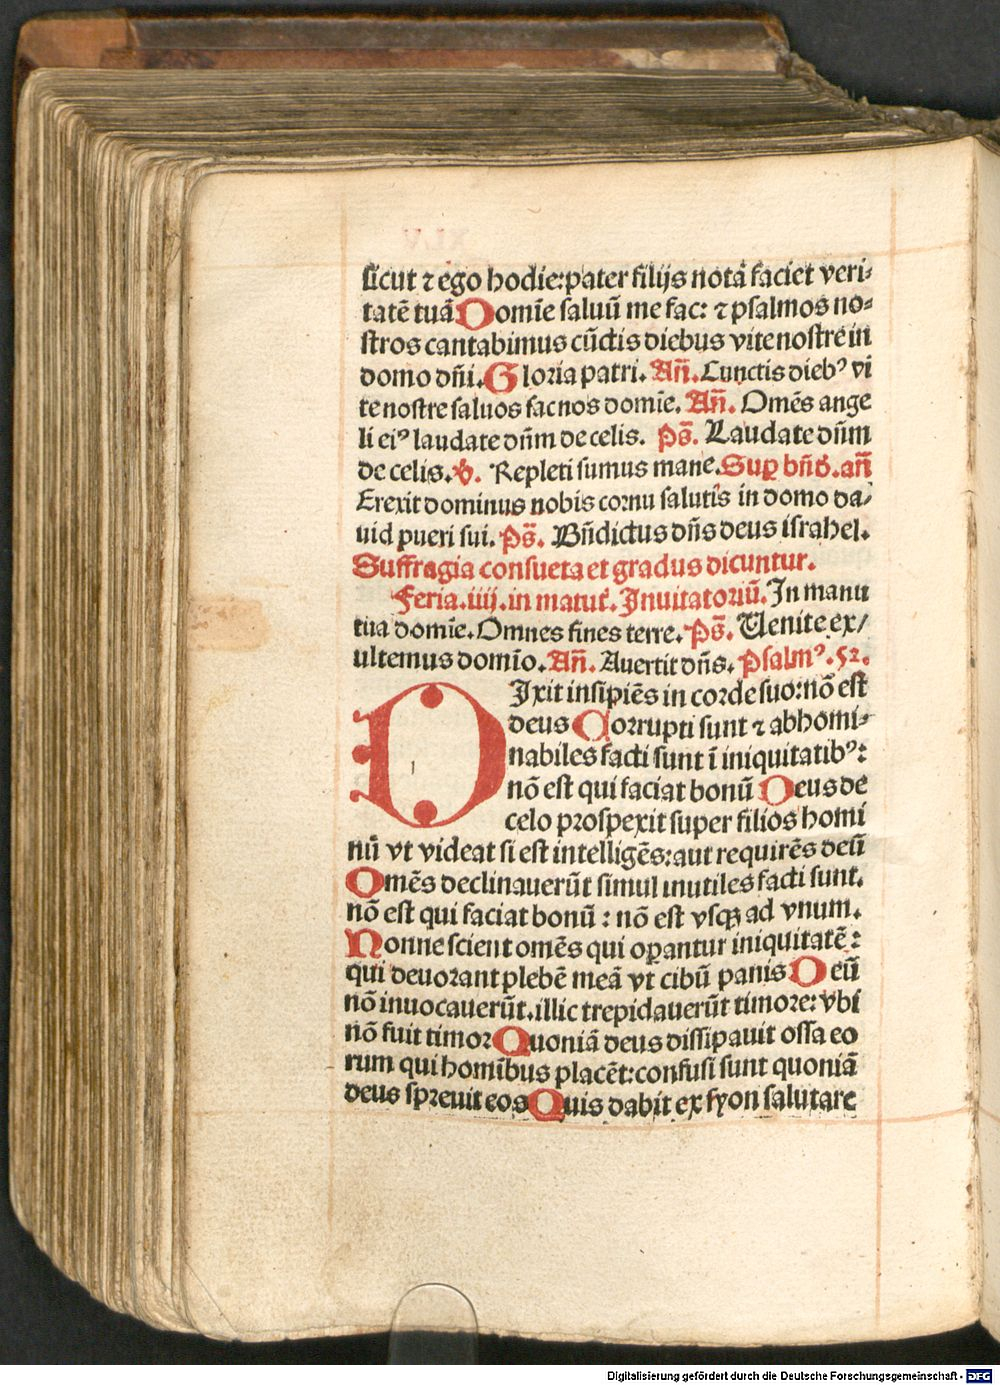 sicut ⁊ ego hodie:pater filijs notā faciet veri⸗
tatē tuā Domīe saluū me fac: ⁊ psalmos no⸗
stros cantabimus cūctis diebus vite nostre in
domo dn̄i. Gloria patri. Añ. Cunctis dieb⁹ vi
te nostre saluos fac nos domīe. Añ. Omēs ange
li ei⁹ laudate dn̄m de celis. Ps̄. Laudate dn̄m
de celis. v̄. Repleti sumus mane. Suꝑ bn̄d. añ
Erexit dominus nobis cornu salutis in domo da⸗
uid pueri sui. Ps̄. Bn̄dictus dn̄s deus israhel.
Suffragia consueta et gradus dicuntur.
Feria.iiij.in matut. Inuitatoriū. In manu
tua domīe. Omnes fines terre. Ps̄. Uenite ex/
ultemus domīo. Añ. Auertit dn̄s. Psalm⁹.52.
DIxit insipiēs in corde suo: nō est
deus Corrupti sunt ⁊ abhomi⸗
nabiles facti sunt ī iniquitatib⁹:
nō est qui faciat bonū Deus de
celo prospexit super filios homi
nū vt videat si est intelligēs: aut requirēs deū
Omēs declinauerūt simul inutiles facti sunt.
nō est qui faciat bonū : nō est vsqꝫ ad vnum.
Nonne scient omēs qui oꝑantur iniquitatē :
qui deuorant plebē meā vt cibū panis Deū
nō inuocauerūt. illic trepidauerūt timore: vbi
nō fuit timor Quoniā deus dissipauit ossa eo
rum qui homībus placēt: confusi sunt quoniā
deus spreuit eos Quis dabit ex syon salutare
Digitalisierung gefördert durch die Deutsche Forschungsgemeinschaft - DFG